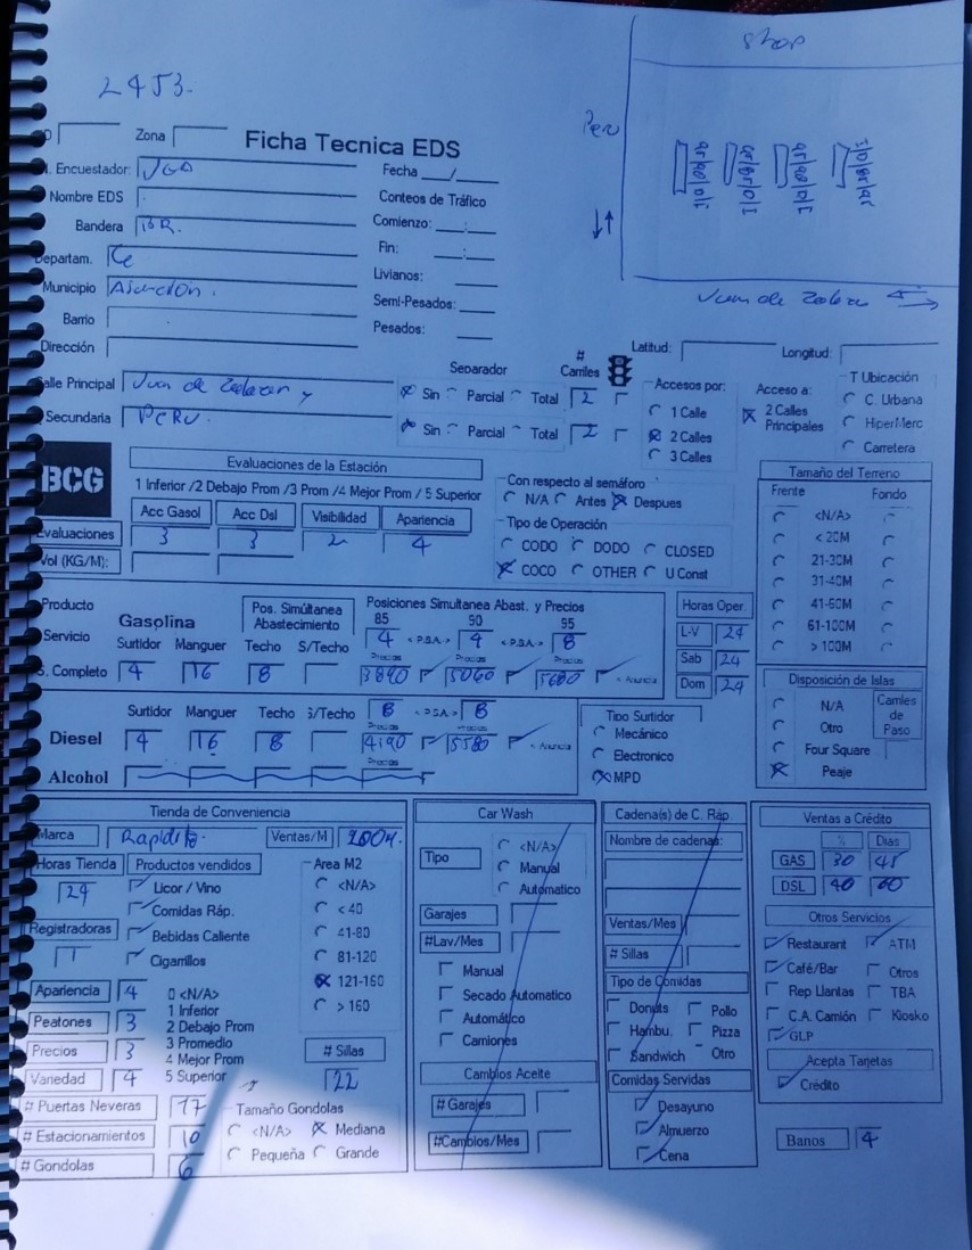 shop
2453.
Peru
Zona
Ficha Tecnica EDS
Encuestador:
Fecha __/__
Nombre EDS
Conteos de Tráfico
Bandera BR.
Comienzo: __:__
Fin: __:__
Departam. Ce
Livianos:
Municipio Asunción.
Semi-Pesados:
Barrio
Pesados:
Juan de
Dirección
Latitud:
Longitud:
Calle Principal Juan de y
Separador
# Carriles
Sin Parcial Total 2
Secundaria PERU.
Sin Parcial Total 2
Accesos por:
1 Calle
2 Calles
3 Calles
Acceso a:
2 Calles Principales
T Ubicación
C. Urbana
HiperMerc
Carretera
BCG
Evaluaciones de la Estación
1 Inferior /2 Debajo Prom /3 Prom /4 Mejor Prom / 5 Superior
Acc Gasol Acc Dsl Visibilidad Apariencia
Evaluaciones 3 3 2 4
Vol (KG/M):
Con respecto al semáforo
N/A Antes Despues
Tipo de Operación
CODO DODO CLOSED
COCO OTHER U Const
Tamaño del Terreno
Frente Fondo
<N/A>
< 20M
21-30M
31-40M
41-60M
61-100M
> 100M
Producto
Servicio
Gasolina
Pos. Simúltanea Abastecimiento
Posiciones Simultanea Abast. y Precios
85 90 95
4 < P.S.A.> 4 < P.S.A.> 8
Surtidor Manguer Techo S/Techo
Precios Precios Precios
S. Completo 4 16 8 3890 5060 5680 < Anuncia
Horas Oper.
L-V 24
Sab 24
Dom 24
Surtidor Manguer Techo S/Techo 8 < P.S.A.> 8
Precios Precios
Diesel 4 16 8 4190 5580 < Anuncia
Precios
Alcohol
Tipo Surtidor
Mecánico
Electronico
MPD
Disposición de Islas
N/A
Otro
Four Square
Peaje
Carriles de Paso
Tienda de Conveniencia
Marca Rapidito. Ventas/M
Horas Tienda 24
Productos vendidos
Licor / Vino
Comidas Ráp.
Bebidas Caliente
Cigarrillos
Registradoras 1
Area M2
<N/A>
< 40
41-80
81-120
121-160
> 160
Apariencia 4
Peatones 3
Precios 3
Variedad 4
0 <N/A>
1 Inferior
2 Debajo Prom
3 Promedio
4 Mejor Prom
5 Superior
# Sillas
22
# Puertas Neveras 17
# Estacionamientos 10
# Gondolas 6
Tamaño Gondolas
<N/A> Mediana
Pequeña Grande
Car Wash
Tipo
<N/A>
Manual
Automatico
Garajes
#Lav/Mes
Manual
Secado Automatico
Automático
Camiones
Cambios Aceite
# Garajes
#Cambios/Mes
Cadena(s) de C. Ráp.
Nombre de cadenas:
Ventas/Mes
# Sillas
Tipo de Comidas
Donuts Pollo
Hambu. Pizza
Sandwich Otro
Comidas Servidas
Desayuno
Almuerzo
Cena
Ventas a Crédito
% Dias
GAS 30 45
DSL 40 60
Otros Servicios
Restaurant ATM
Café/Bar Otros
Rep Llantas TBA
C.A. Camión Kiosko
GLP
Acepta Tarjetas
Crédito
Banos 4